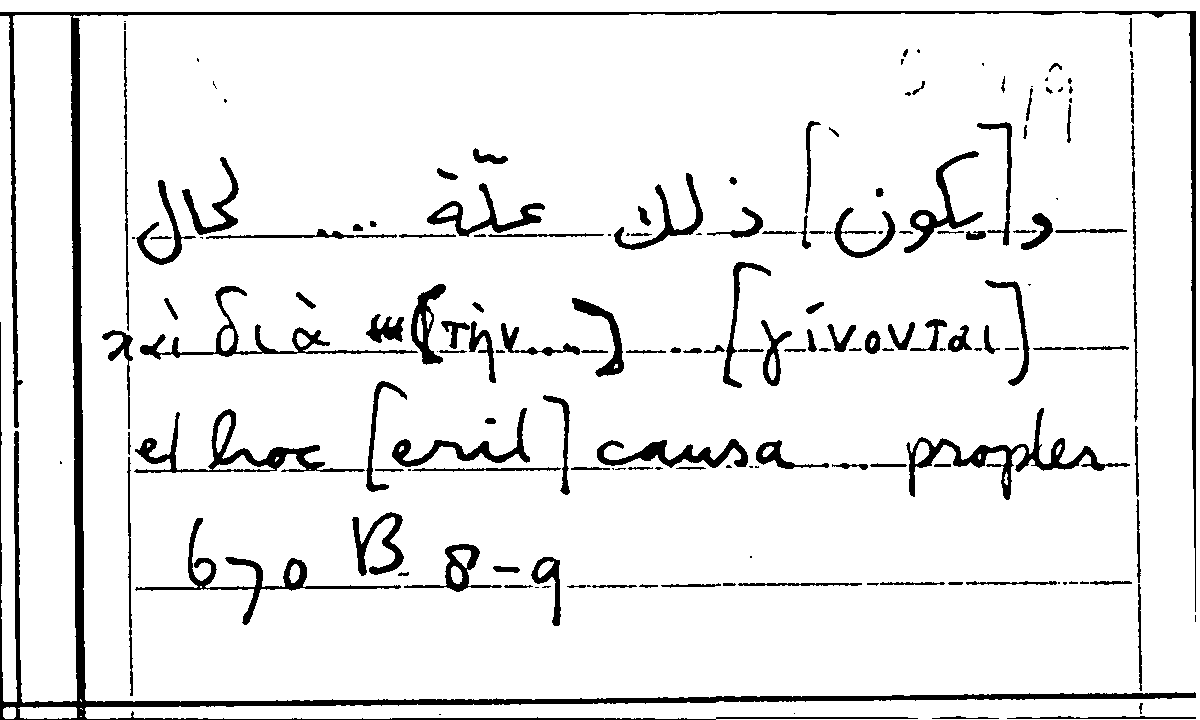 و[يكون] ذلك علّة .... لحال
καὶ διὰ (τὴν....) .... [γίνονται]
et hoc [erit] causa ... propter
670 B 8-9